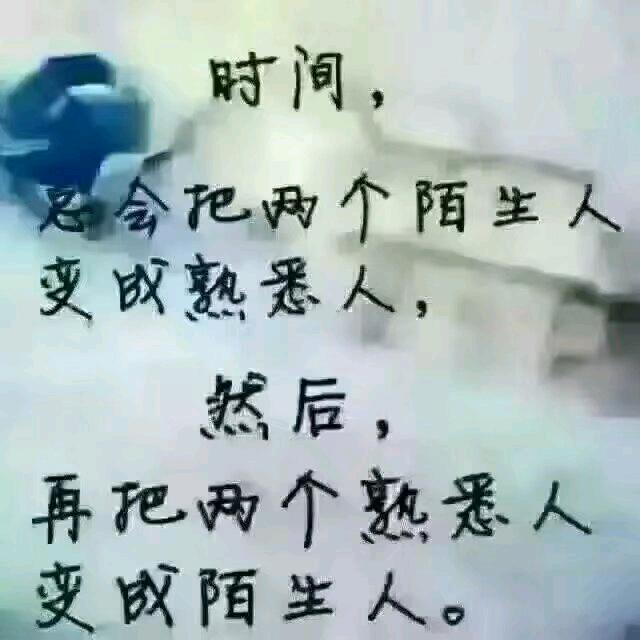 时间，
总会把两个陌生人
变成熟悉人，
然后，
再把两个熟悉人
变成陌生人。